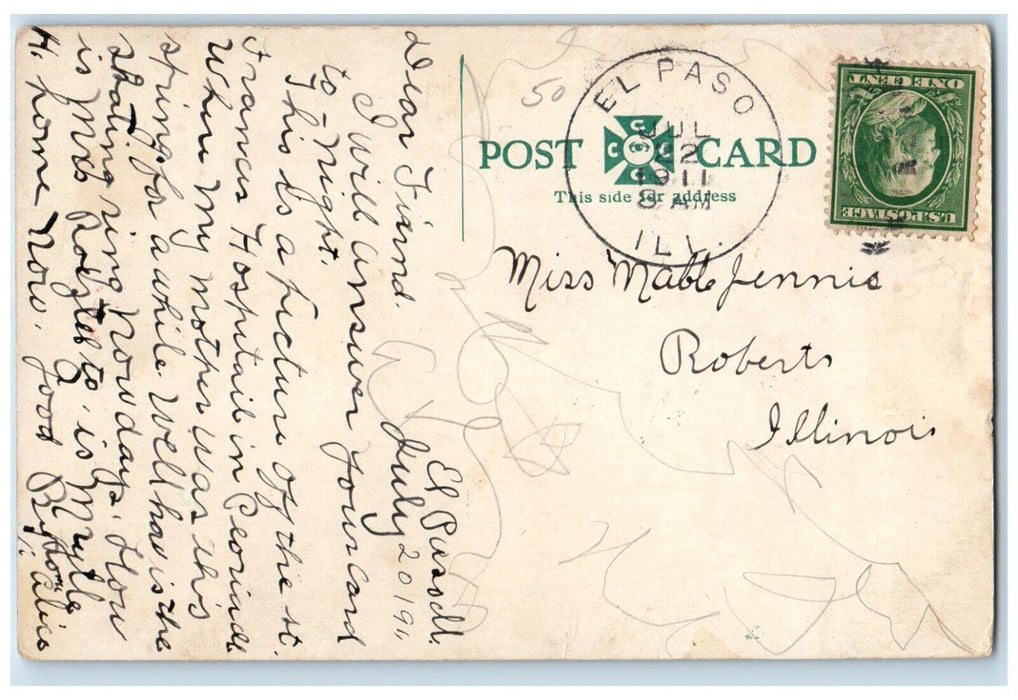 El Paso Ill.
July 20 1911
Dear Friend.
I will answer your card
to-Night.
This is a picture of the st.
Francis Hospital in Peoria Ill
Where my mother was this
spring for a while. Well how is the
skating ring Now days. How
is Mrs
is Myrtle
At home Now. Good By
Alice
50
POST CARD
This side for address
C C C C
EL PASO
JUL
22
1911
8 AM
ILL.
U.S. POSTAGE
ONE CENT
Miss Mable Jennis
Roberts
Illinois